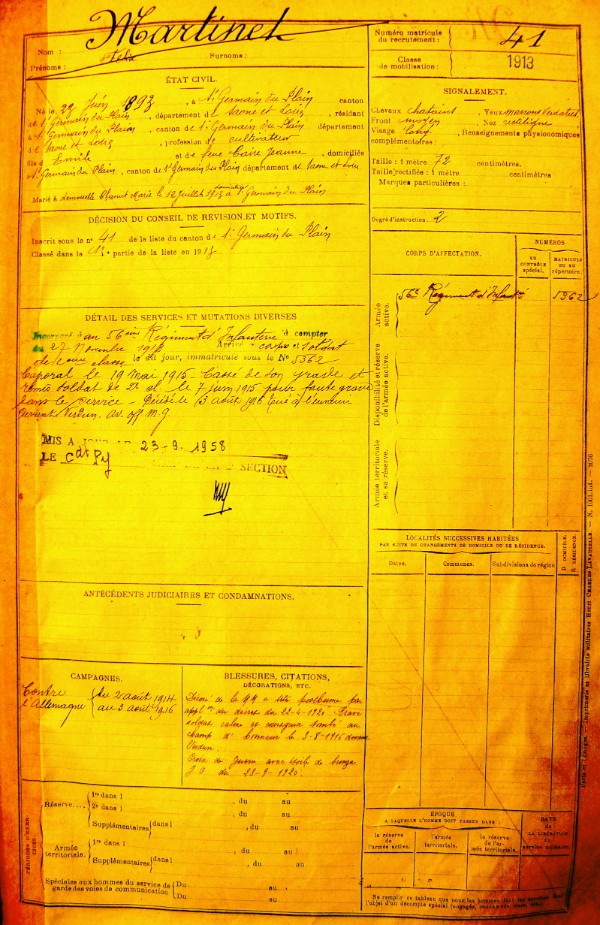 Martinet
Nom :
Prénoms :
Surnoms :
Numéro matricule
du recrutement :
41
Classe
de mobilisation :
1913
ÉTAT CIVIL.
Né le 22 Juin 1893, à St Germain du Plain canton
de St Germain du Plain, département de Saone et Loire, résidant
à St Germain du Plain, canton de St Germain du Plain département
de Saone et Loire, profession de cultivateur
fils d Emile et de feue Jeanne, domiciliés
à St Germain du Plain, canton de St Germain du Plain département de Saone et Loire
Marié à demoiselle Marie le 12 Juillet 1913 à St Germain du Plain
SIGNALEMENT.
Cheveux chatains, Yeux marrons
Front moyen Nez rectiligne
Visage long, Renseignements physionomiques
complémentaires :
Taille : 1 mètre 72 centimètres.
Taille rectifiée : 1 mètre centimètres
Marques particulières :
Degré d'instruction : 2
DÉCISION DU CONSEIL DE RÉVISION ET MOTIFS.
Inscrit sous le n° 41 de la liste du canton de St Germain du Plain
Classé dans la 1re partie de la liste en 1913
CORPS D'AFFECTATION.
NUMÉROS
AU CONTRÔLE spécial.
MATRICULE OU AU répertoire.
Armée active.
56e Régiment d'Infanterie
5362
Disponibilité et réserve de l'armée active.
Armée territoriale et sa réserve.
DÉTAIL DES SERVICES ET MUTATIONS DIVERSES
Incorporé au 56ème Régiment d'Infanterie à compter
du 27 Novembre 1913 Arrivé au corps et soldat
de 2ème classe le dit jour, immatriculé sous le No 5362
Caporal le 19 Mai 1915 Cassé de son grade et
remis soldat de 2e cl. le 7 juin 1915 pour faute grave
dans le service - Décédé le 3 août 1916 tué à l'ennemi
devant Verdun. Av. off. M. G.
MIS A JOUR LE 23-9-1958
LE SECTION
LOCALITÉS SUCCESSIVES HABITÉES
PAR SUITE DE CHANGEMENTS DE DOMICILE OU DE RÉSIDENCE.
Dates.
Communes.
Subdivisions de région
D. DOMICILE. R. RÉSIDENCE.
ANTÉCÉDENTS JUDICIAIRES ET CONDAMNATIONS.
CAMPAGNES.
Contre l'Allemagne
du 2 août 1914
au 3 août 1916
BLESSURES, CITATIONS,
DÉCORATIONS, ETC.
Décoré de la a titre posthume par
du décret du 22-4-1920. Brave
soldat calme et courageux tombé au
champ d'honneur le 3-8-1916 devant
Verdun.
Croix de Guerre avec étoile de bronze
J.O. du 1920.
Réserve....
1re dans l , du au
2e dans l , du au
Supplémentaires dans l , du au
Armée territoriale.
1re dans l , du au
Supplémentaires dans l , du au
Spéciales aux hommes du service de
garde des voies de communication
Du au
Du au
ÉPOQUE
A LAQUELLE L'HOMME DOIT PASSER DANS :
la réserve de l'armée active.
l'armée territoriale.
la réserve de l'armée territoriale.
DATE DE LA LIBÉRATION du service militaire.